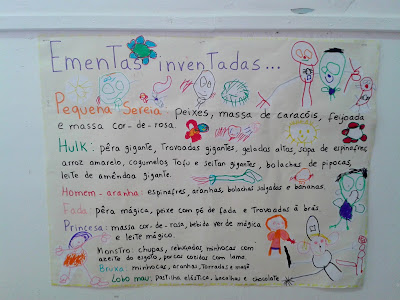 Ementas inventadas...
Pequena Sereia: peixes, massa de caracóis, feijoada
e massa cor-de-rosa.
Hulk: pêra gigante, Trovoadas gigantes, geladas altas, sopa de espinafres,
arroz amarelo, cogumelos Tofu e seitan gigantes, bolachas de pipocas,
leite de amêndoa gigante.
Homem-aranha: espinafres, aranhas, bolachas salgadas e bananas.
Fada: pêra mágica, peixe com pó de fada e Trovoadas à brás
Princesa: massa cor-de-rosa, bebida verde mágica
e leite mágico.
Monstro: chupas, rebuçados, minhocas com
azeite do esgoto, porcos cozidos com lama.
Bruxa: minhocas, aranhas, Torradas e maçã
Lobo mau: pastilha elástica, bacalhau e chocolate